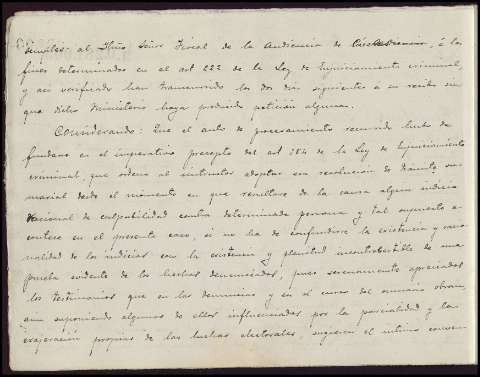 al Iltmo Señor Fiscal de la Audiencia de á los
fines determinados en el art 222 de la Ley de Enjuiciamiento criminal,
y así verificado han transcurrido los dos días siguientes á su recibo sin
que dicho Ministerio haya producido petición alguna.
Considerando: Que el auto de procesamiento recurrido hubo de
fundarse en el imperativo precepto del art 384 de la Ley de Enjuiciamiento
criminal, que ordena al instructor adoptar esa resolución de trámite su-
marial desde el momento en que resultare de la causa algun indicio
racional de culpabilidad contra determinada persona y tal supuesto a-
contece en el presente caso, si no ha de confundirse la existencia y racio-
nalidad de los indicios con la existencia y plenitud incontrovertible de una
prueba evidente de los hechos denunciados, pues serenamente apreciados
los testimonios que en las denuncias y en el curso del sumario obran,
aun suponiendo algunos de ellos influenciados por la parcialidad y la
exageración propias de las luchas electorales, sugieren el íntimo conven-